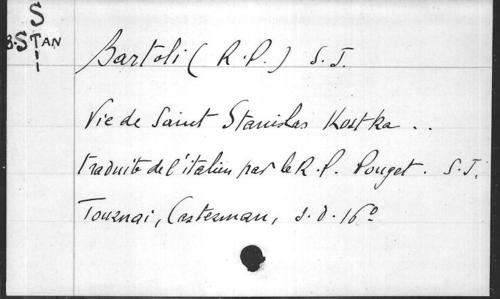 S
B.STAN
I
Bartoli (R.P.) S.J.
Vie de Saint Stanislas Kostka ..
traduite de l'italien par le R.P. Pouget. S.J.
Tournai, Casterman, s.d. 16º